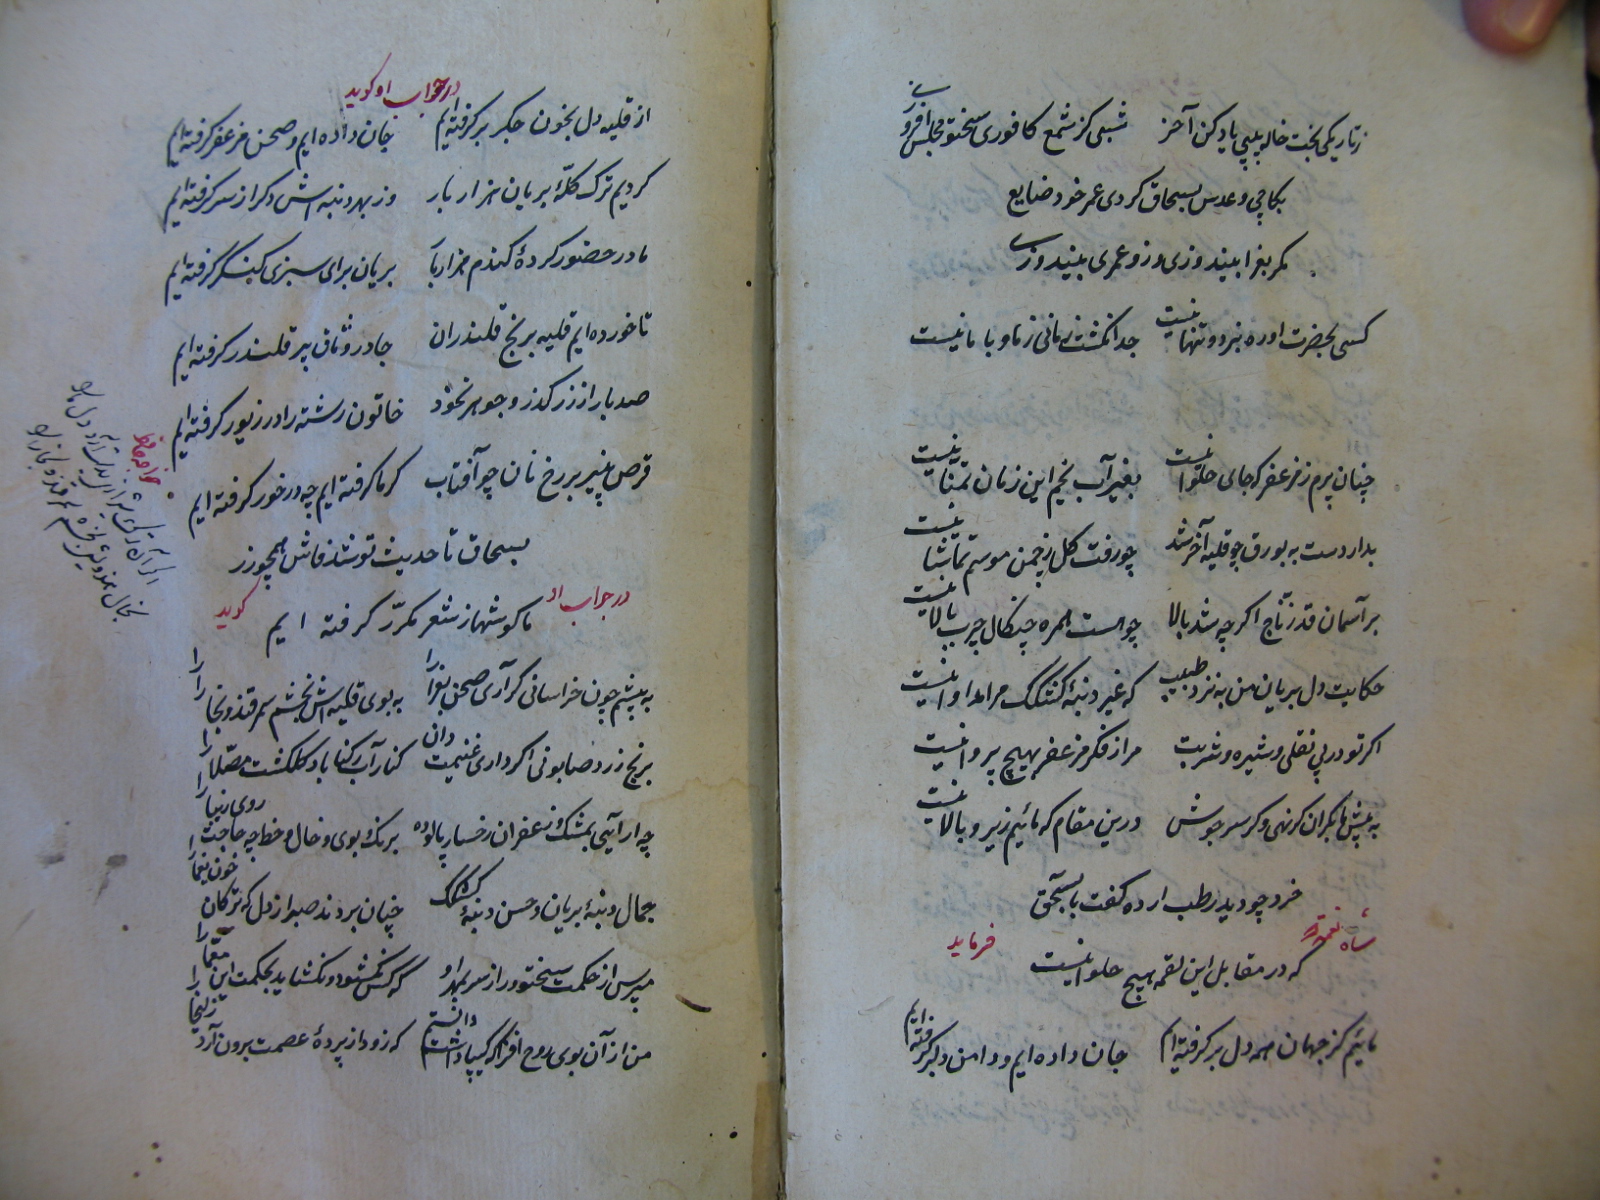 ز تاریکی بخت خاله بیبی یاد کن آخر شبی کز شمع کافوری سختو مجلس افروزی
بکاچی و عدس بسحاق کردی عمر خود ضایع
مکر بغرا بیند وزی وزو عمری بیندوزی
کسی بحضرت او ره نبرد و تنها نیست جدا نکشت زمانی ز ما و با ما نیست
چنان پرم ز مزعفر که جای حلوا نیست بغیر آب یخم این زمان تمنا نیست
بدار دست به بورق چو قلیه آخر شد چو رفت کل ز چمن موسم تماشا نیست
بر آسمان قدر تتماج اکر چه شد بالا چو هست همره چنکال چرب بالا نیست
حکایت دل بریان من به نزد طبیب که غیر دنبهٔ کشکک مرا مداوا نیست
اکر تو در پی نقلی و شیره و شربت مرا ز فکر مزعفر بهیچ پروا نیست
به پیش ما بکران کر نهی و کر سرجوش درین مقام که مائیم زیر و بالا نیست
خرد چو دید رطب ارده کفت بابسحق
که در مقابل این لقمه هیچ حلوا نیست
شاه نعمة الله فرماید
مائیم کز جهان همه دل بر کرفته ایم جان داده ایم و دامن دلبر کرفته ایم
در جواب او کوید
از قلیه دل بخون جکر بر کرفته ایم جان داده ایم و صحن مزعفر کرفته ایم
کردیم ترک کلّهٔ بریان هزار بار وز بهر دنبه اش دکر از سر کرفته ایم
ما در حضور کردهٔ کندم هزار بار بریان برای سبزی کنکر کرفته ایم
تا خورده ایم قلیه برنج قلندران جا در وثاق پیر قلندر کرفته ایم
صد بار از زر کذر و جوهر نخود خاتون رشته را در زیور کرفته ایم
قرص پنیر بر رخ نان چو آفتاب کرما کرفته ایم چه در خور کرفته ایم
بسحاق تا حدیث تو شد فاش همچو زر
ما کوشها ز شعر مکرّر کرفته ایم
در جواب او کوید
خواجه حافظ
اکر آن ترک شیرازی بدست آرد دل ما را
بخال هندویش بخشم سمرقند و بخارا را
به پیشم چون خراسانی کر آری صحن بغرا را به بوی قلیه اش بخشم سمرقند و بخارا را
برنج زرد و صابونی اکر داری غنیمت دان کنار آب رکناباد و کلکشت مصلّا را
چه آرایی بمشک و زعفران رخسار پالوده برنک و بوی و خال و خط چه حاجت روی زیبا را
جمال دنبهٔ بریان و حسن دنبهٔ کشکک چنان بردند صبر از دل که ترکان خوان یغما را
مپرس از حکمت سختو و راز سر بمهر او که کس نکشود و نکشاید بحکمت این معما را
من از آن بوی روح افزا که کیپا داشت دانستم که زود از پردهٔ عصمت برون آرد زلیخا را